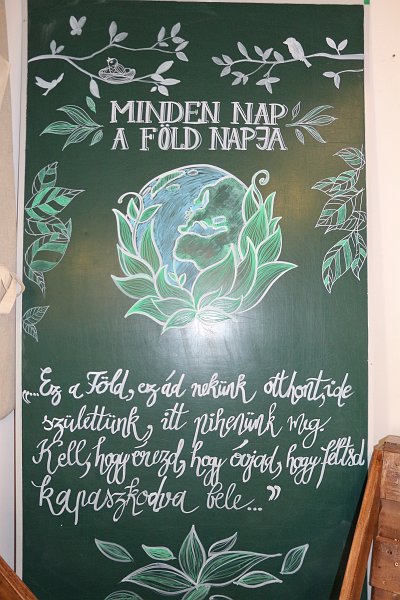 MINDEN NAP
A FÖLD NAPJA
„...Ez a Föld, ez ád nekünk otthont, ide
születtünk, itt pihenünk meg.
Kell, hogy érezd, hogy óvjad, hogy féltsd
kapaszkodva bele...”